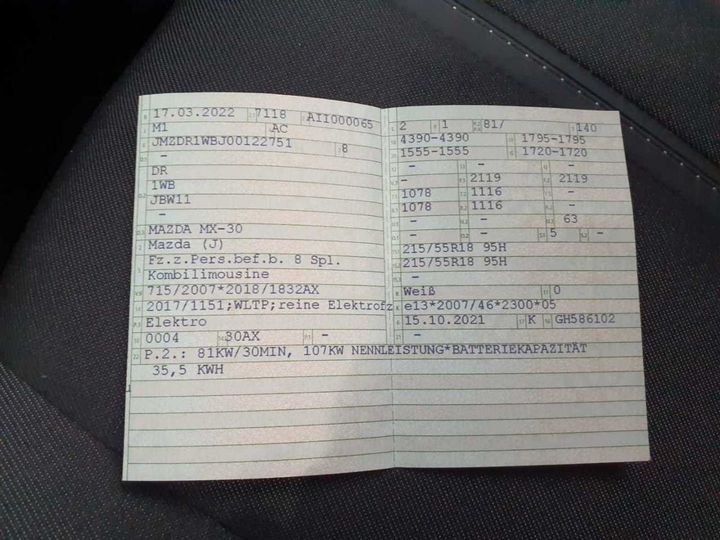 17.03.2022 7118 AII000065
M1 AC
JMZDR1WBJ00122751 8
-
DR
1WB
JBW11
-
MAZDA MX-30
Mazda (J)
Fz.z.Pers.bef.b. 8 Spl.
Kombilimousine
715/2007*2018/1832AX
2017/1151;WLTP;reine Elektrofz
Elektro
0004 30AX -
2 1 81/ 140
4390-4390 1795-1795
1555-1555 1720-1720
- - -
- 2119 2119
1078 1116 -
1078 1116 -
- - 63
- - 5 -
215/55R18 95H
215/55R18 95H
-
Weiß 0
e13*2007/46*2300*05
15.10.2021 K GH586102
-
P.2.: 81KW/30MIN, 107KW NENNLEISTUNG*BATTERIEKAPAZITÄT
35,5 KWH